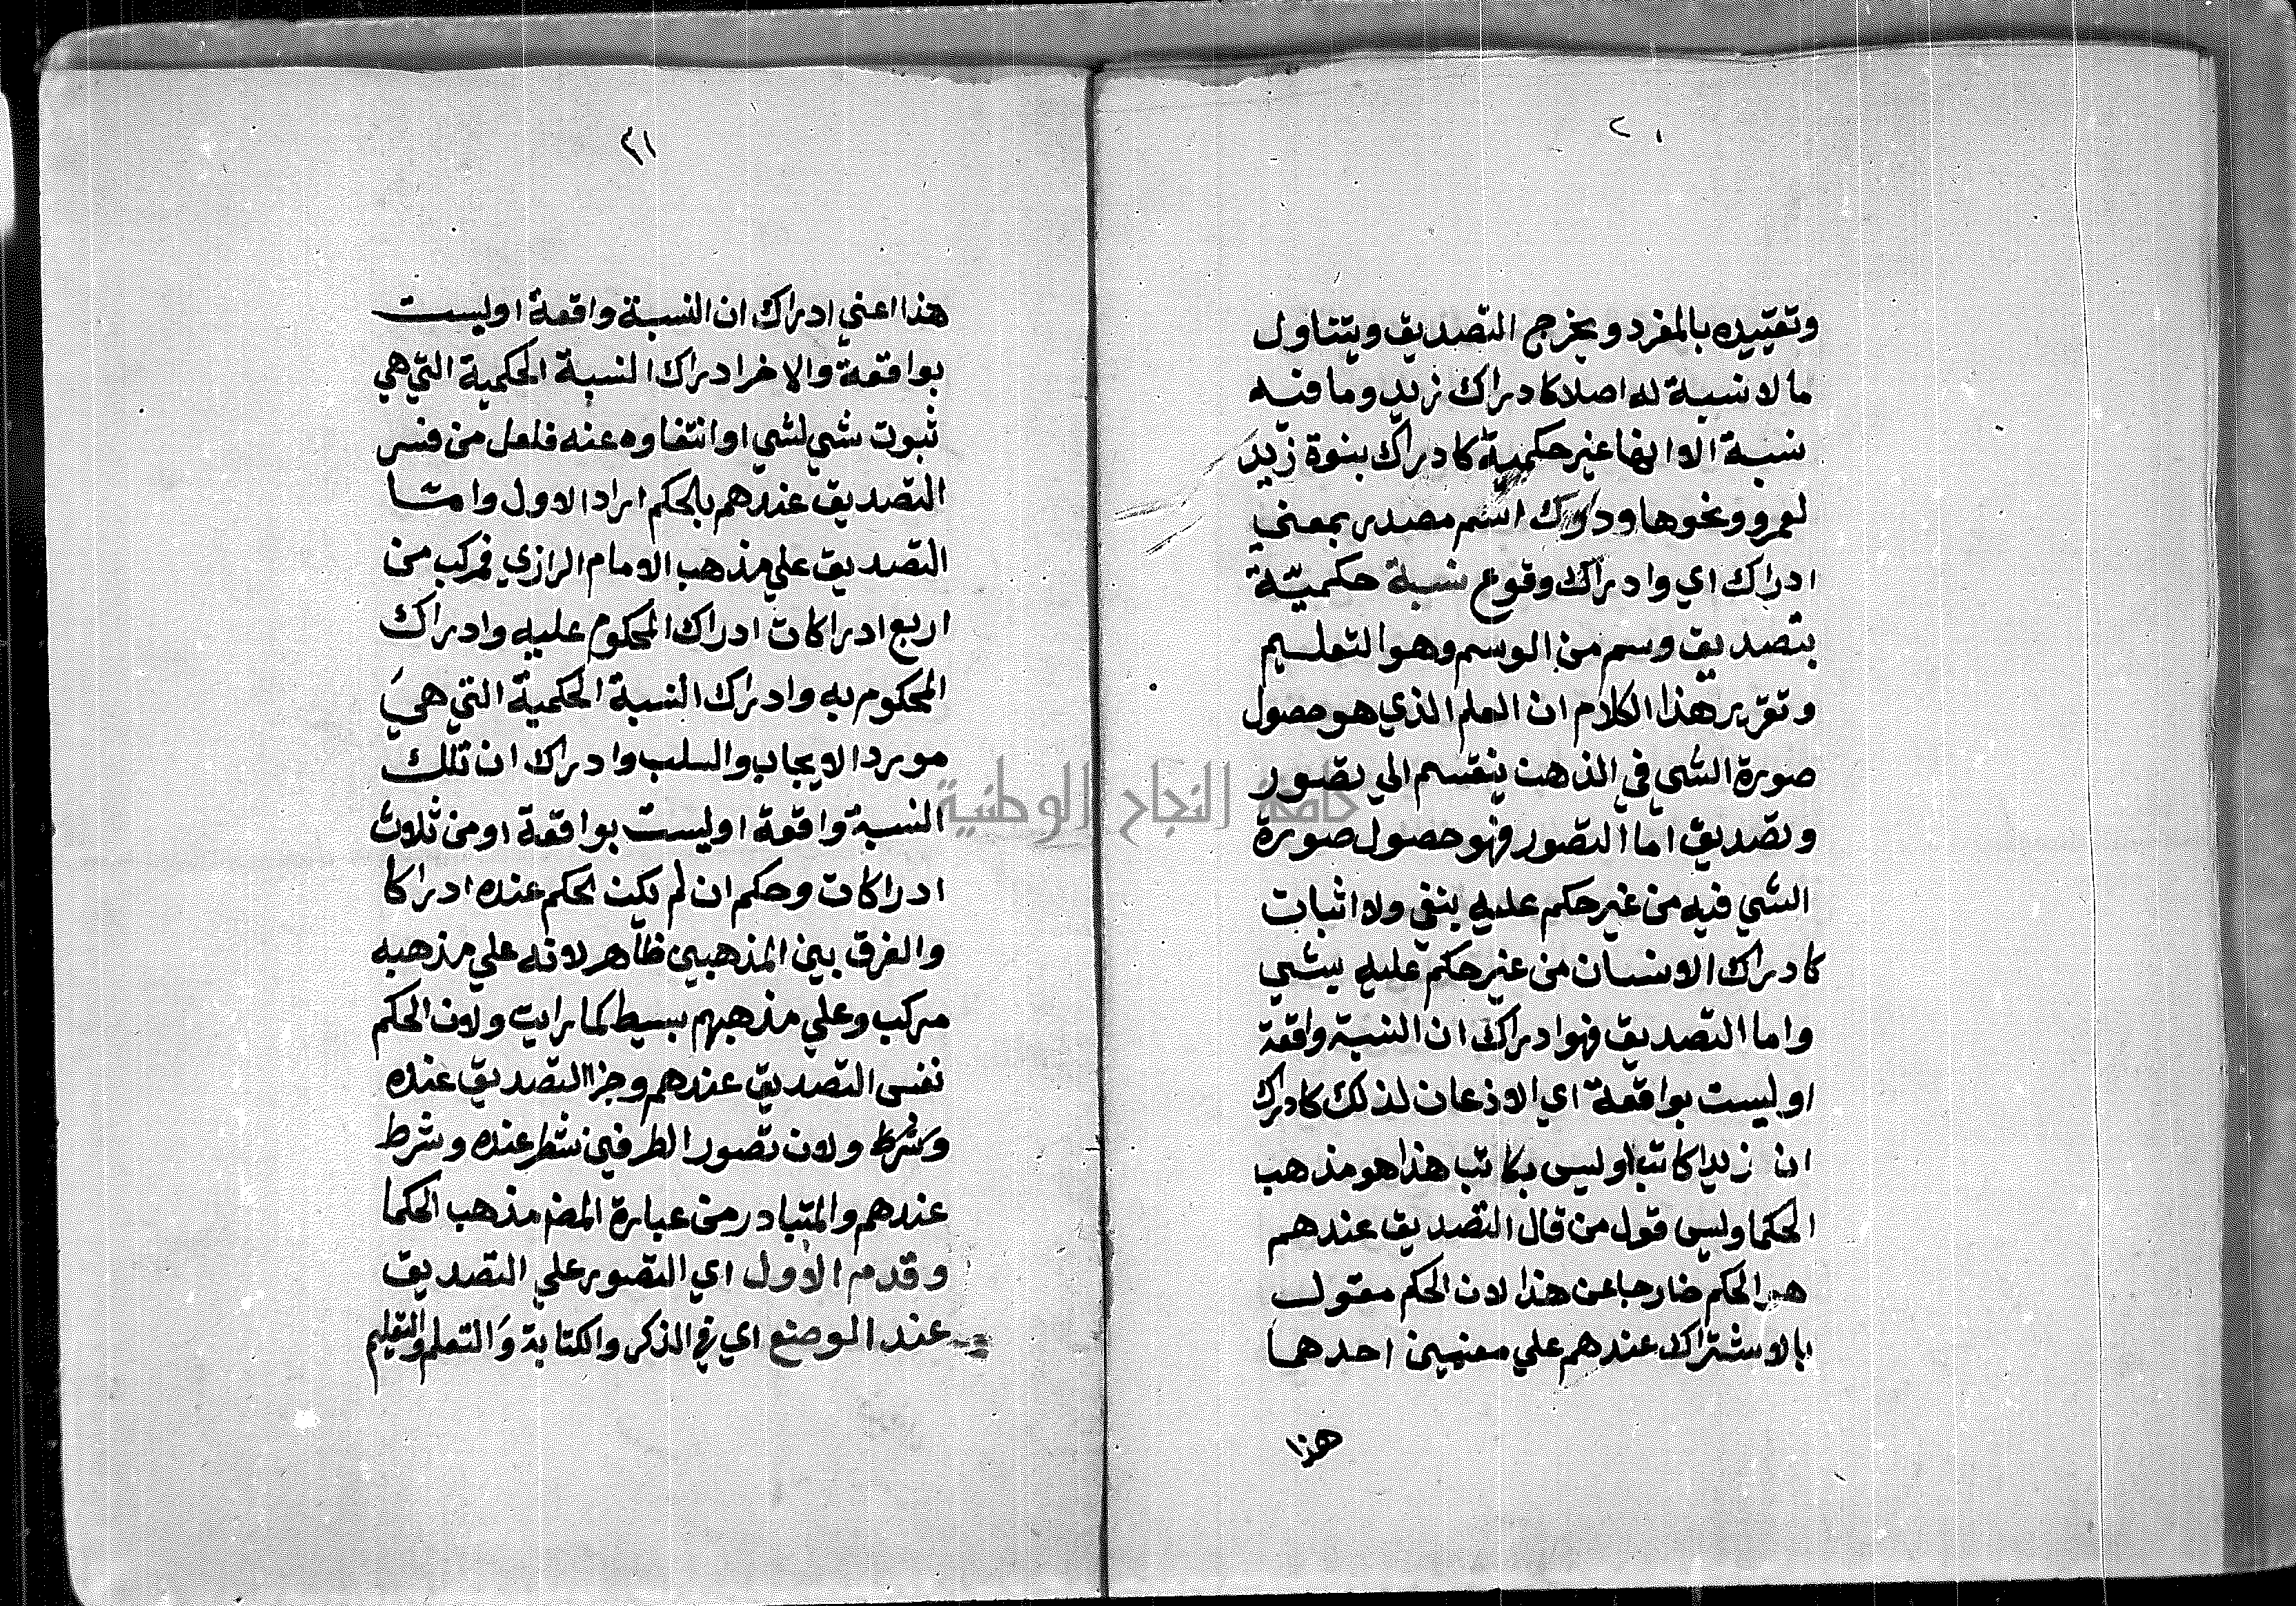 ٢٠
وتقييده بالمفرد ويخرج التصديق ويتناول
ما لا نسبة له اصلا كادراك زيد وما فيه
نسبة الا انها غير حكمية كادراك بنوة زيد
لعمرو ونحوها ودرك اسم مصدر بمعني
ادراك اي وادراك وقوع نسبة حكمية
بتصديق وسم من الوسم وهو التعليم
وتقرير هذا الكلام ان العلم الذي هو حصول
صورة الشي في الذهن ينقسم الي تصور
وتصديق اما التصور فهو حصول صورة
الشي فيه من غير حكم عليه بنفي ولا اثبات
كادراك الانسان من غير حكم عليه بشي
واما التصديق فهو ادراك ان النسبة واقعة
او ليست بواقعة اي الاذعان لذلك كادراك
ان زيدا كاتب او ليس بكاتب هذا هو مذهب
الحكما وليس قول من قال التصديق عندهم
هو الحكم خارجا عن هذا لان الحكم مقول
بالاشتراك عندهم علي معنيين احدهما
هذا
٢١
هذا اعني ادراك ان النسبة واقعة او ليست
بواقعة والاخر ادراك النسبة الحكمية التي هي
ثبوت شي لشي او انتفاوه عنه فلعل من فسر
التصديق عندهم بالحكم اراد الاول واما
التصديق علي مذهب الامام الرازي فمركب من
اربع ادراكات ادراك المحكوم عليه وادراك
المحكوم به وادراك النسبة الحكمية التي هي
مورد الايجاب والسلب وادراك ان تلك
النسبة واقعة او ليست بواقعة او من ثلاث
ادراكات وحكم ان لم يكن الحكم عنده ادراكا
والفرق بين المذهبين ظاهر لانه علي مذهبه
مركب وعلي مذهبهم بسيط كما رايت ولان الحكم
نفس التصديق عندهم وجزا التصديق عنده
وشرط ولان تصور الطرفين شطر عنده وشرط
عندهم والمتبادر من عبارة المص مذهب الحكما
وقدم الاول اي التصور علي التصديق
عند الوضع اي في الذكر والكتابة والتعلم والتعليم
جامعة النجاح الوطنية